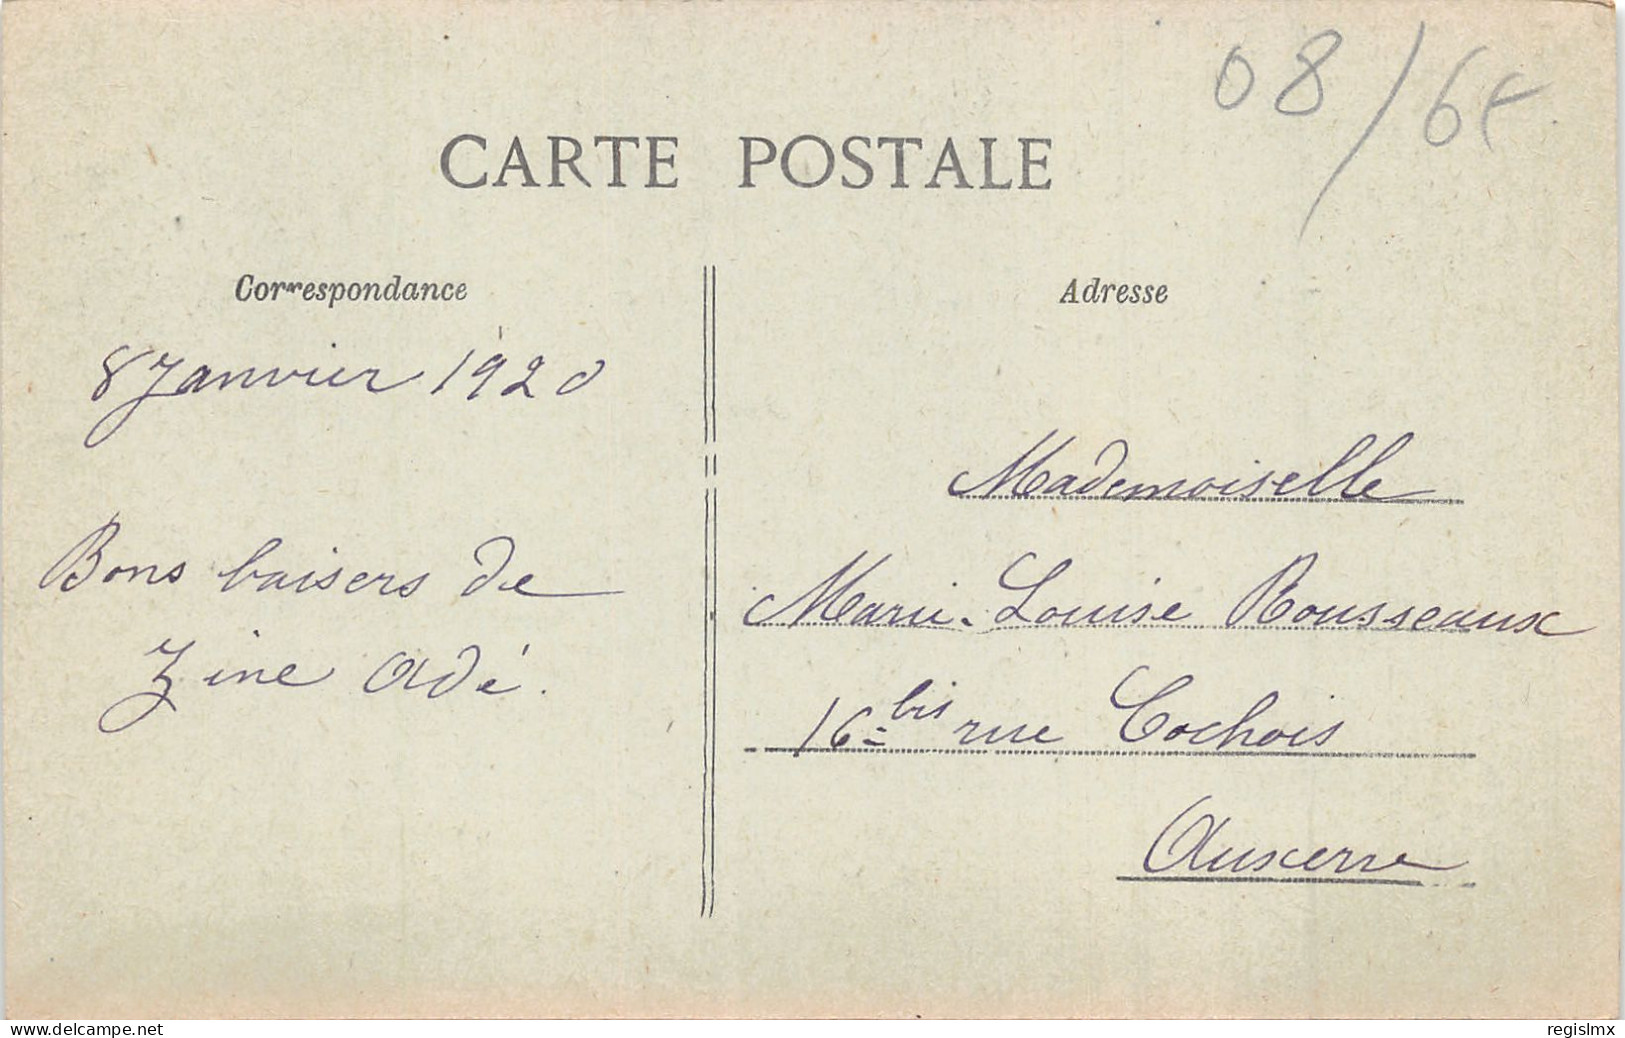 08/6€
CARTE POSTALE
Correspondance
8 Janvier 1920
Bons baisers de
Zine Adé.
Adresse
Mademoiselle
Marie-Louise Rousseaux
16 bis rue Cochois
Auxerre
www.delcampe.net
regislmx